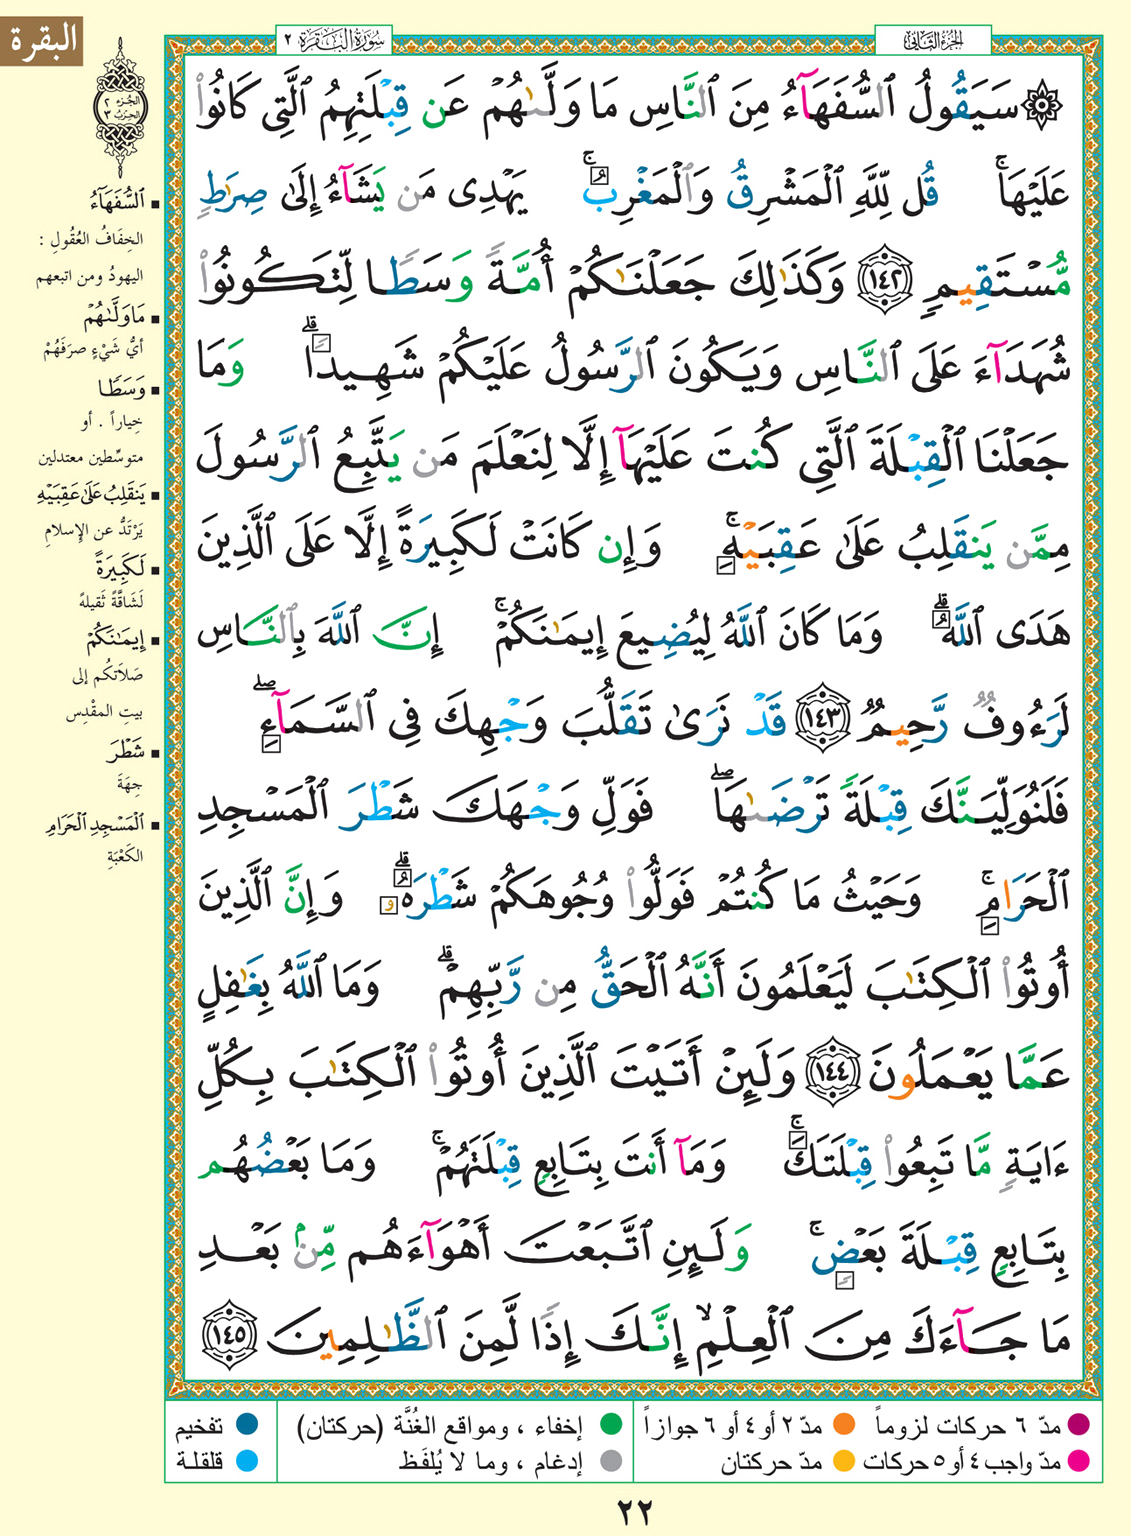 البقرة
سُورَةُ البَقَرَة ٢
الجُزءُ الثَّانِي
الجُزء ٢
الحِزبُ ٣
۞ سَيَقُولُ ٱلسُّفَهَآءُ مِنَ ٱلنَّاسِ مَا وَلَّىٰهُمْ عَن قِبْلَتِهِمُ ٱلَّتِى كَانُوا۟
عَلَيْهَا ۚ قُل لِّلَّهِ ٱلْمَشْرِقُ وَٱلْمَغْرِبُ ۚ يَهْدِى مَن يَشَآءُ إِلَىٰ صِرَٰطٍ
مُّسْتَقِيمٍ ١٤٢ وَكَذَٰلِكَ جَعَلْنَٰكُمْ أُمَّةً وَسَطًا لِّتَكُونُوا۟
شُهَدَآءَ عَلَى ٱلنَّاسِ وَيَكُونَ ٱلرَّسُولُ عَلَيْكُمْ شَهِيدًا ۗ وَمَا
جَعَلْنَا ٱلْقِبْلَةَ ٱلَّتِى كُنتَ عَلَيْهَآ إِلَّا لِنَعْلَمَ مَن يَتَّبِعُ ٱلرَّسُولَ
مِمَّن يَنقَلِبُ عَلَىٰ عَقِبَيْهِ ۚ وَإِن كَانَتْ لَكَبِيرَةً إِلَّا عَلَى ٱلَّذِينَ
هَدَى ٱللَّهُ ۗ وَمَا كَانَ ٱللَّهُ لِيُضِيعَ إِيمَٰنَكُمْ ۚ إِنَّ ٱللَّهَ بِٱلنَّاسِ
لَرَءُوفٌ رَّحِيمٌ ١٤٣ قَدْ نَرَىٰ تَقَلُّبَ وَجْهِكَ فِى ٱلسَّمَآءِ ۖ
فَلَنُوَلِّيَنَّكَ قِبْلَةً تَرْضَىٰهَا ۖ فَوَلِّ وَجْهَكَ شَطْرَ ٱلْمَسْجِدِ
ٱلْحَرَامِ ۚ وَحَيْثُ مَا كُنتُمْ فَوَلُّوا۟ وُجُوهَكُمْ شَطْرَهُۥ ۗ وَإِنَّ ٱلَّذِينَ
أُوتُوا۟ ٱلْكِتَٰبَ لَيَعْلَمُونَ أَنَّهُ ٱلْحَقُّ مِن رَّبِّهِمْ ۗ وَمَا ٱللَّهُ بِغَٰفِلٍ
عَمَّا يَعْمَلُونَ ١٤٤ وَلَئِنْ أَتَيْتَ ٱلَّذِينَ أُوتُوا۟ ٱلْكِتَٰبَ بِكُلِّ
ءَايَةٍ مَّا تَبِعُوا۟ قِبْلَتَكَ ۚ وَمَآ أَنتَ بِتَابِعٍ قِبْلَتَهُمْ ۚ وَمَا بَعْضُهُم
بِتَابِعٍ قِبْلَةَ بَعْضٍ ۚ وَلَئِنِ ٱتَّبَعْتَ أَهْوَآءَهُم مِّنۢ بَعْدِ
مَا جَآءَكَ مِنَ ٱلْعِلْمِ ۙ إِنَّكَ إِذًا لَّمِنَ ٱلظَّٰلِمِينَ ١٤٥
▪ ٱلسُّفَهَآءُ
الخِفَافُ العُقُولِ :
اليهودُ ومن اتبعهم
▪ مَا وَلَّىٰهُمْ
أيُّ شَيْءٍ صرَفَهُمْ
▪ وَسَطًا
خِياراً . أو
متوسِّطين معتدلين
▪ يَنقَلِبُ عَلَىٰ عَقِبَيْهِ
يَرْتَدُّ عن الإسلامِ
▪ لَكَبِيرَةً
لَشَاقَّةً ثَقيلةً
▪ إِيمَٰنَكُمْ
صَلاَتكُم إلى
بيتِ المقْدِس
▪ شَطْرَ
جِهَةَ
▪ ٱلْمَسْجِدِ ٱلْحَرَامِ
الكَعْبَةِ
مدّ ٦ حركات لزوماً
مدّ ٢ أو ٤ أو ٦ جوازاً
إخفاء ، ومواقع الغُنَّة (حركتان)
تفخيم
مدّ واجب ٤ أو ٥ حركات
مدّ حركتان
إدغام ، وما لا يُلفَظ
قلقلة
٢٢